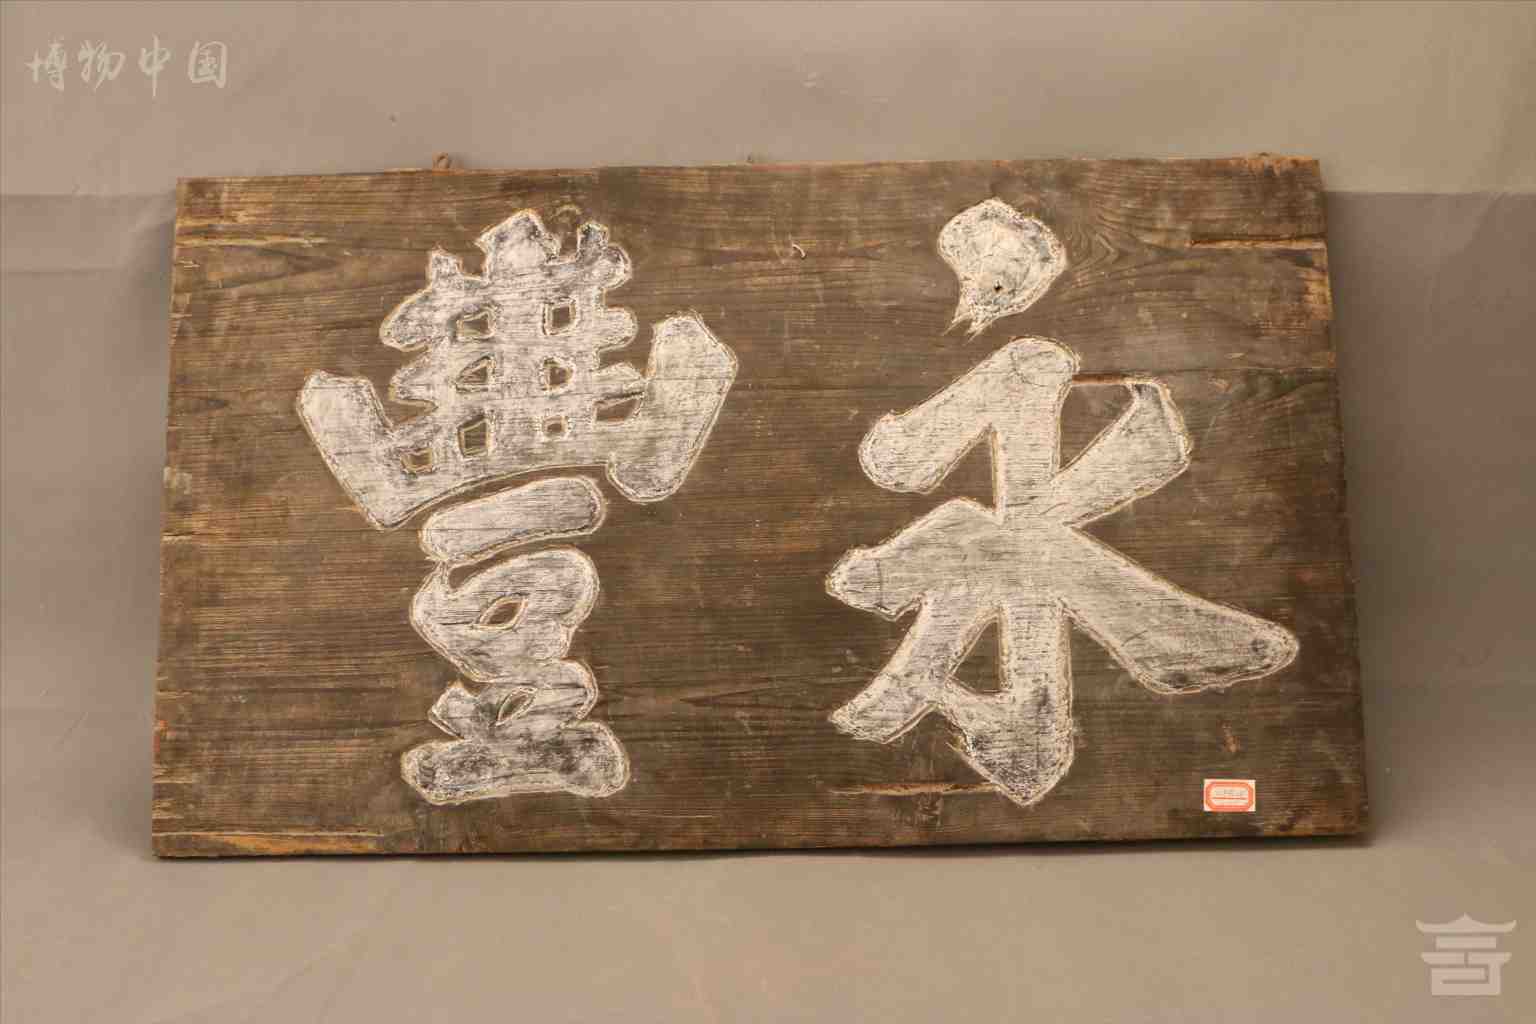 博物中国
永豐